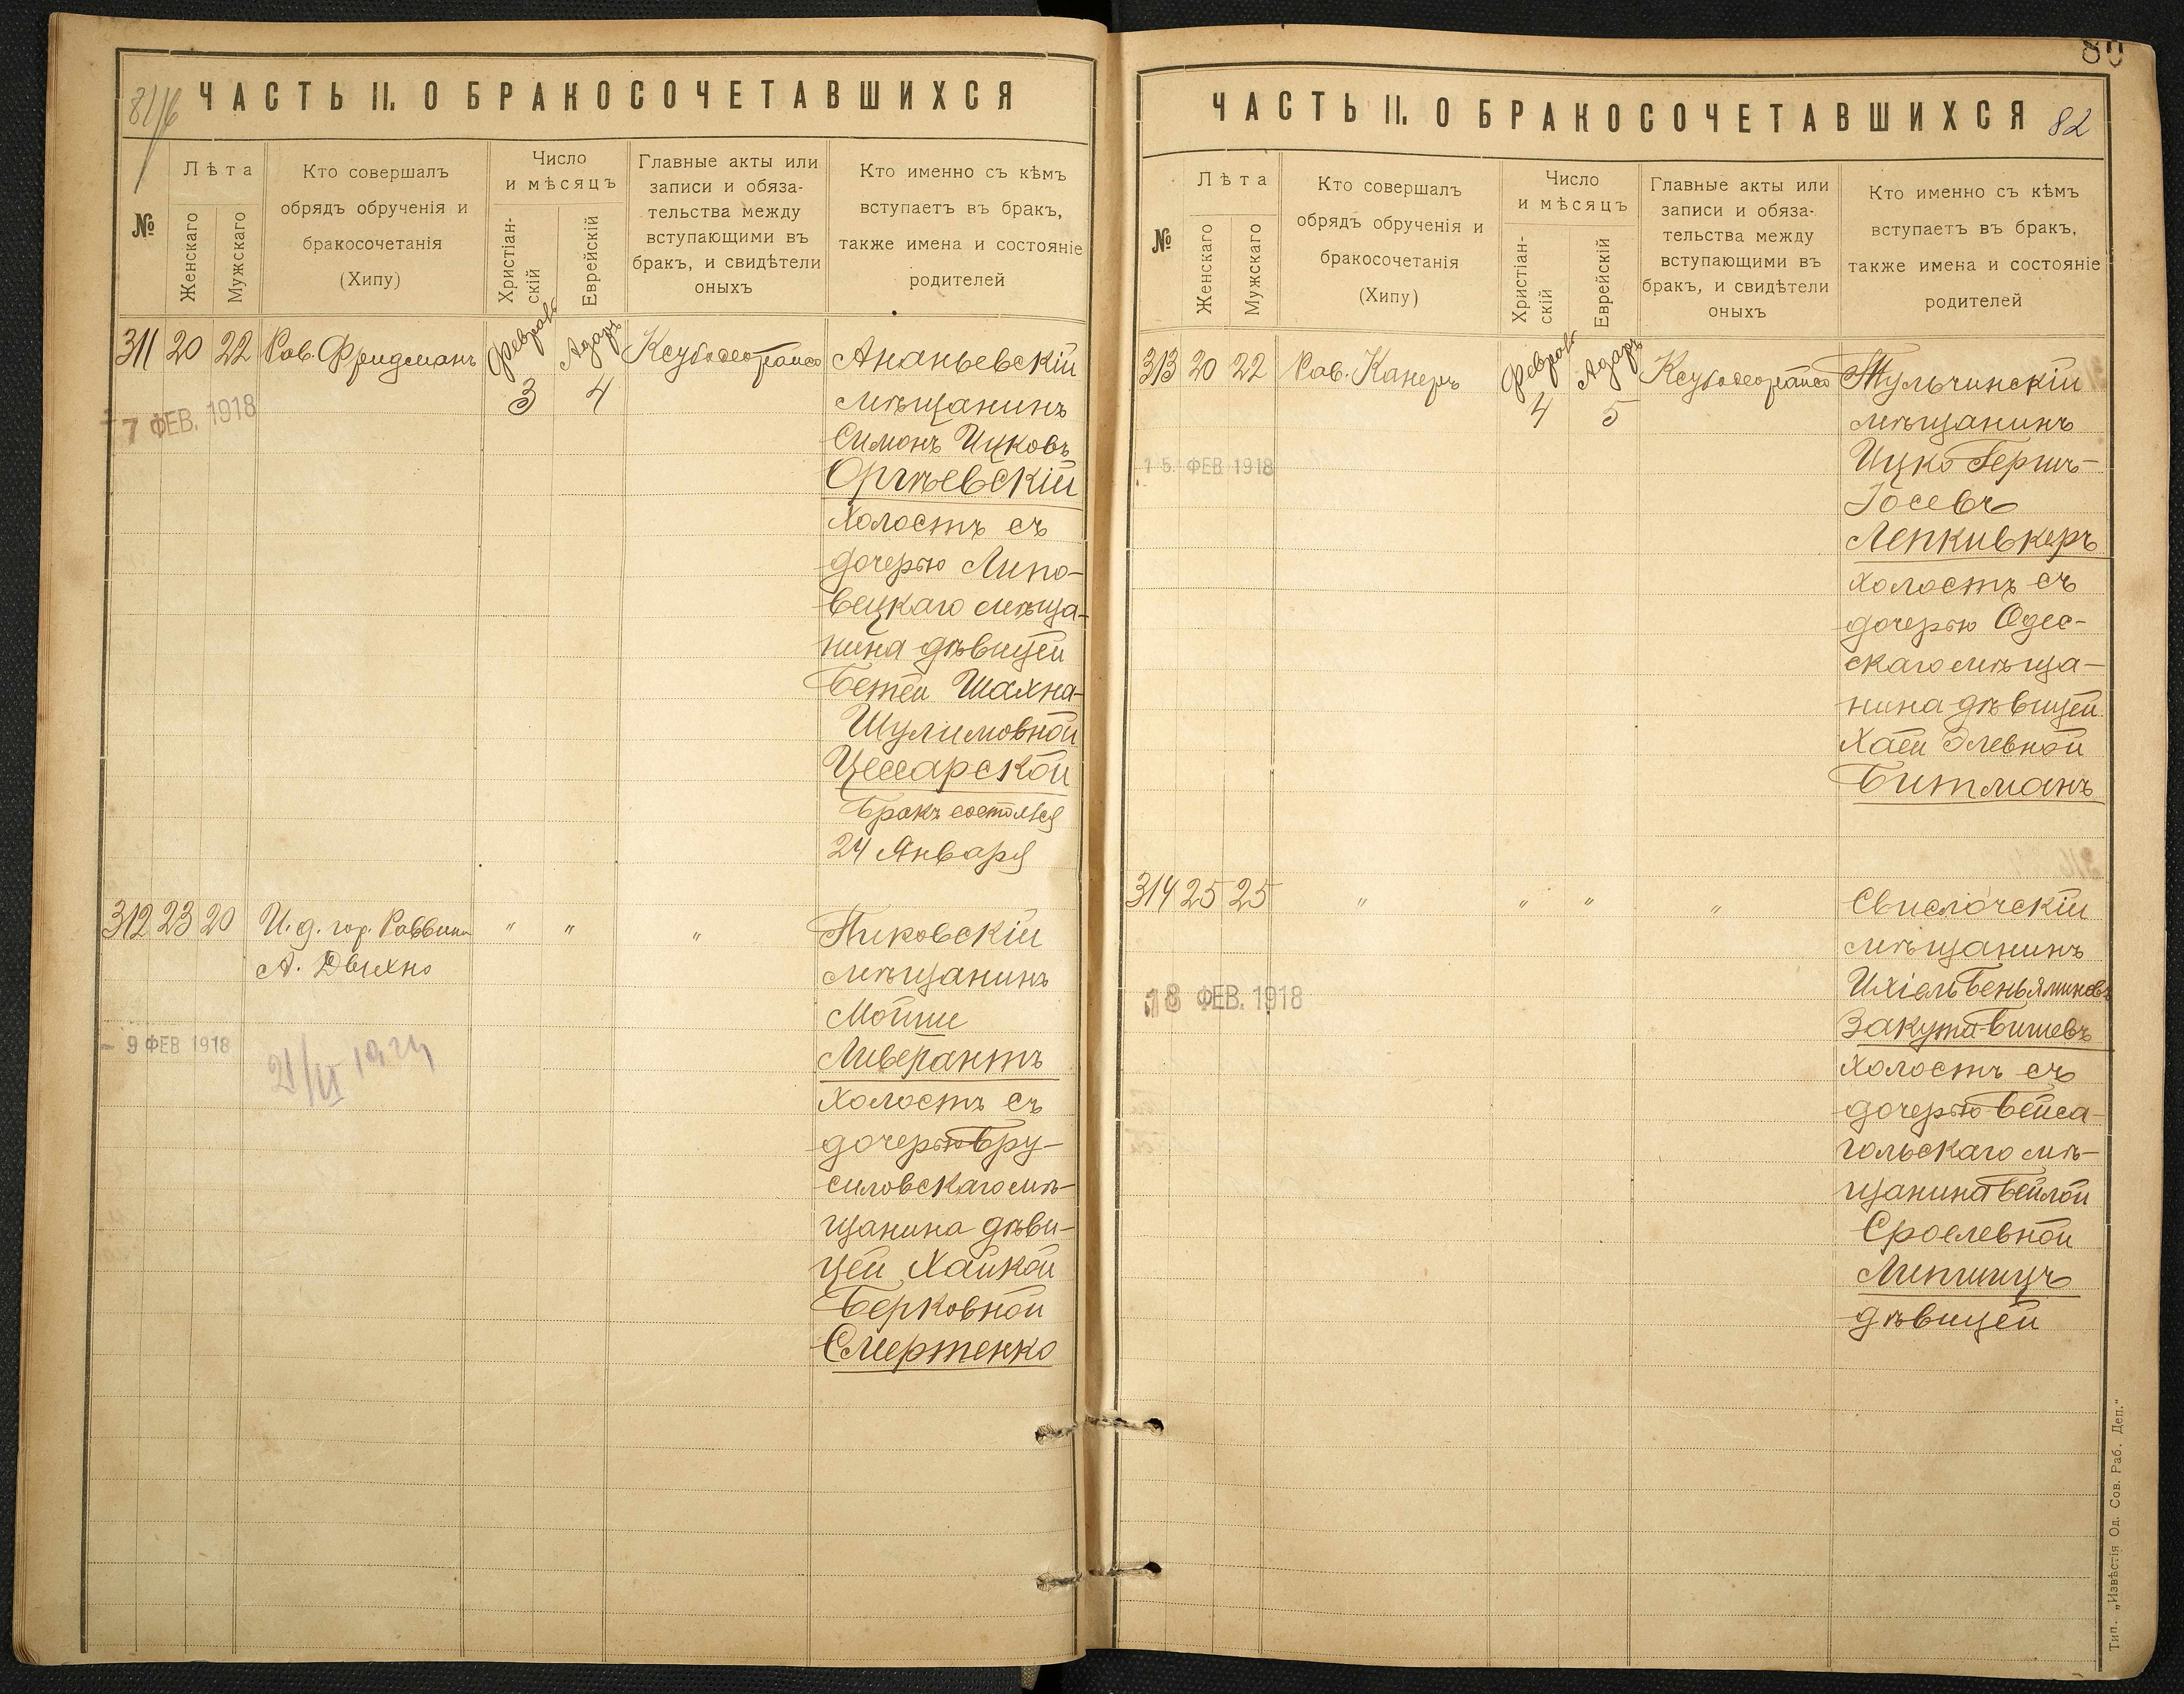 81/б
ЧАСТЬ II. О БРАКОСОЧЕТАВШИХСЯ
№
Лѣта
Женскаго
Мужскаго
Кто совершалъ
обрядъ обрученія и
бракосочетанія
(Хипу)
Число
и мѣсяцъ
Христіан-
скій
Еврейскій
Главные акты или
записи и обяза-
тельства между
вступающими въ
бракъ, и свидѣтели
оныхъ
Кто именно съ кѣмъ
вступаетъ въ бракъ,
также имена и состояніе
родителей
311 20 22 Рав. Фридманъ
Февраль 3
Адаръ 4
Ананьевскій
мѣщанинъ
Симонъ Ицковъ
Оргѣевскій
холостъ съ
дочерью Липо-
вецкаго мѣща-
нина дѣвицей
Бетей Шахна-
Шулимовной
Цесарской
Бракъ состоялся
24 Января
7 ФЕВ. 1918
312 23 20 И. д. гор. Раввина
А. Двихно
" " "
Пиковскій
мѣщанинъ
Мойше
Ливерантъ
холостъ съ
дочерью Бру-
силовскаго мѣ-
щанина дѣви-
цей Хайкой
Берковной
Смертенко
- 9 ФЕВ 1918
21/VI 1924
80
ЧАСТЬ II. О БРАКОСОЧЕТАВШИХСЯ
82
№
Лѣта
Женскаго
Мужскаго
Кто совершалъ
обрядъ обрученія и
бракосочетанія
(Хипу)
Число
и мѣсяцъ
Христіан-
скій
Еврейскій
Главные акты или
записи и обяза-
тельства между
вступающими въ
бракъ, и свидѣтели
оныхъ
Кто именно съ кѣмъ
вступаетъ въ бракъ,
также имена и состояніе
родителей
313 20 22 Рав. Канеръ
Февраль 4
Адаръ 5
Тульчинскій
мѣщанинъ
Ицко Гершъ-
Іосевъ
Лепкивкеръ
холостъ съ
дочерью Одес-
скаго мѣща-
нина дѣвицей
Хаей Элевной
Битманъ
15. ФЕВ 1918
314 25 25
" " " "
Свислочскій
мѣщанинъ
Ихіель Беньяминовъ
Закута-Вишевъ
холостъ съ
дочерью Вейса-
гольскаго мѣ-
щанина Бейлой
Сроелевной
Липшицъ
дѣвицей
18 ФЕВ. 1918
Тип. „Извѣстія Од. Сов. Раб. Деп."